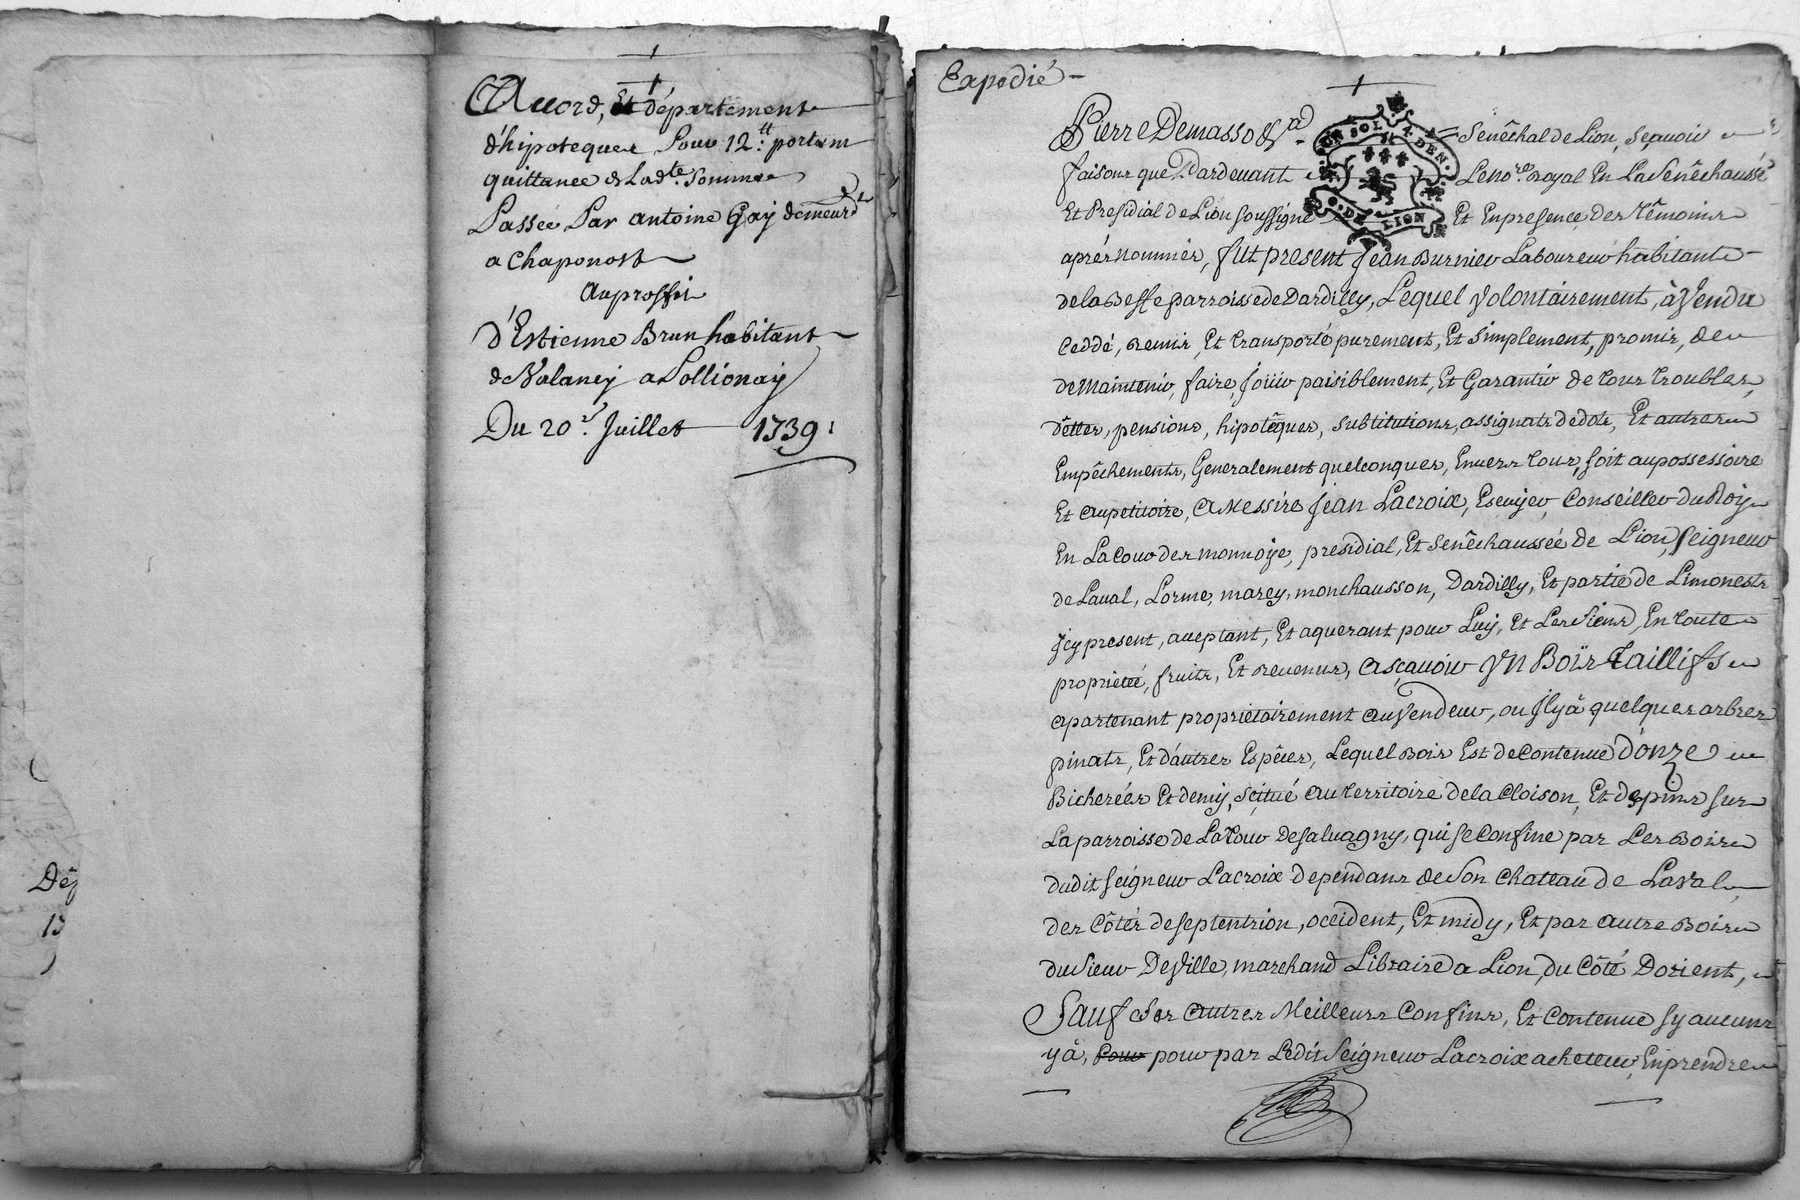 Accord, Et département
d'hipoteques Pour 12.tt portant
quittance de Ladte. Somme
Passée Par antoine Gaÿ demeurt
a Chaponost
Auproffit
d'Estienne Brun habitant
de Valancy a Pollionaÿ
Du 20e. Juillet 1739.
Dé
13
Expedié
Pierre Demasso &a. Senêchal de Lion, sçauoir
faisons que Pardeuant Le nore. royal En La Senêchaussé
Et Presidial de Lion soussigné Et En presence des têmoins
aprés nommés, fut present Jean Burnier Laboureur habitant
de la Beffe parroisse de Dardilly, Lequel volontairement, à Vendu
Ceddé, remis, Et transporté purement, Et simplement, promis, de
de Maintenir, faire, joüir paisiblement, Et Garantir de tous troubles,
dettes, pensions, hipotêques, substitutions, assignats dedots, Et autres
Empêchements, Generalement quelconques, Enuers tous, soit au possessoire
Et au petitoire, A Messire Jean Lacroix, Escuÿer, Conseiller du Roÿ
En La Cour des monnoÿe, presidial, Et Senêchaussée de Lion, Seigneur
de Laual, Lorme, marcy, monchausson, Dardilly, Et partie de Limonest
Jcy present, aceptant, Et aquerant pour Luÿ, Et Les Siens, En toute
proprieté, fruits, Et reuenus, Asçauoir Vn Bois Taillifs
apartenant proprietairement au Vendeur, ou Jl y â quelques arbres
pinats, Et d'autres Espêces, Lequel Bois Est de Contenue d'onze
Bicherées Et demÿ, scitué au territoire de la Cloison, Et des pins sur
La parroisse de La tour De saluagny, qui se Confine par Les Bois
dudit seigneur Lacroix dependans de Son Chateau de Laval
des Côtés de septentrion, occident, Et midy, Et par autre Bois
du sieur DeVille, marchand Libraire a Lion, du Côté Dorient,
Sauf Ses autres Meilleurs Confins, Et Contenue sy aucuns
y â, pour par Ledit Seigneur Lacroix acheteur, En prendre